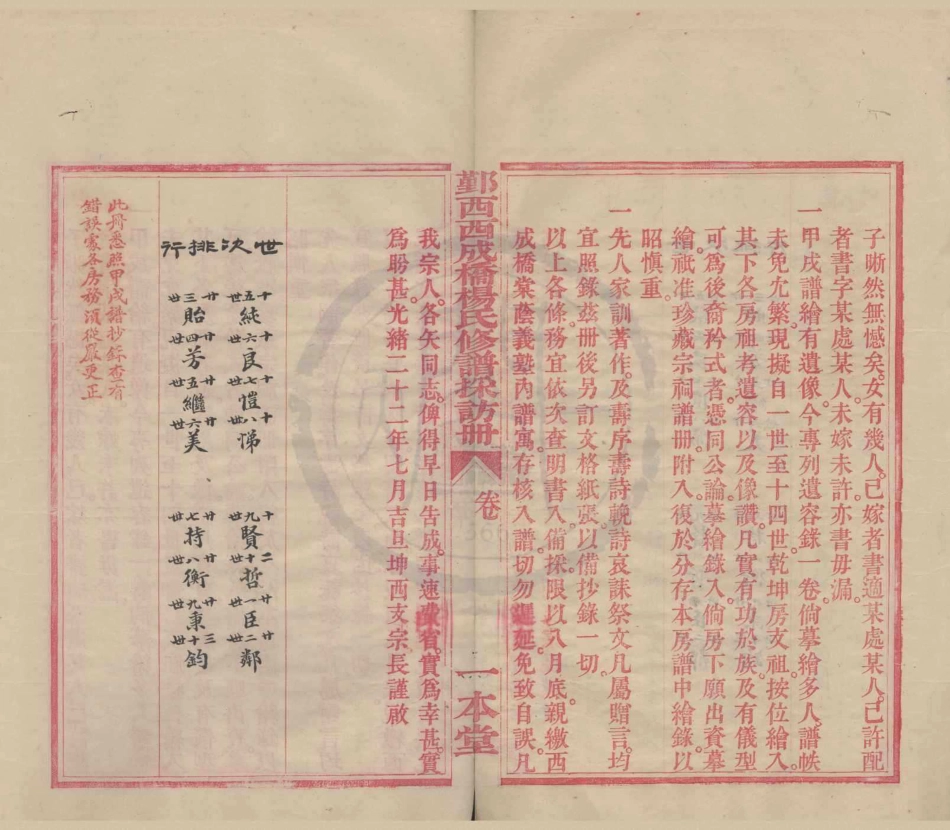 子晰然無憾矣。女有幾人。已嫁者書適某處某人。已許配
者書字某處某人。未嫁未許亦書毋漏。
一甲戌譜繪有遺像。今專列遺容錄一卷。倘摹繪多人。譜帙
未免冗繁。現擬自一世至十四世。乾坤房支祖。按位繪入。
其下各房祖考遺容以及像讚。凡實有功於族。及有儀型
可爲後裔矜式者。憑同公論。摹繪錄入。倘房下願出資摹
繪。祇准珍藏宗祠譜册。附入。復於分存本房譜中繪錄。以
昭慎重。
一先人家訓著作。及壽序壽詩輓詩哀誄祭文凡屬贈言。均
宜照錄茲册後另訂文格紙張。以備抄錄一切。
以上各條。務宜依次查明書入。備採。限以八月底。親繳西
成橋棠蔭義塾內譜寓。存核入譜。切勿遲延。免致自誤。凡
鄞西西成橋楊氏修譜採訪册
卷
一本堂
我宗人。各矢同志。俾得早日告成。事速費省。實爲幸甚。實
爲盼甚。光緒二十二年七月吉旦坤西支宗長謹啟
世次排行
十五世純 十六世良 十七世愷 十八世悌
十九世賢 二十世哲 廿一世臣 廿二世鄰
廿三世貽 廿四世芳 廿五世繼 廿六世美
廿七世持 廿八世衡 廿九世秉 三十世鈞
此冊悉照甲戌譜抄錄查有
錯誤處各房務須從嚴更正